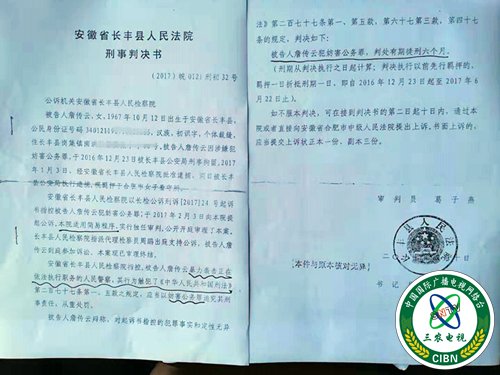 安徽省长丰县人民法院
刑事判决书
(2017)皖0121刑初32号
公诉机关安徽省长丰县人民检察院
被告人詹传云,1967年10月12日出生于安徽省长丰县,
公民身份证号码34012119 汉族,初识字,个体裁缝,
住长丰县岗集镇南 被告人詹传云因涉嫌犯
妨害公务罪,于2016年12月23日被长丰县公安局刑事拘留,2017
年1月3日,经安徽省长丰县人民检察院批准逮捕,同日被长丰
县公安局执行逮捕。现羁押于合肥市女子看守所。
安徽省长丰县人民检察院以长检公诉刑诉[2017]24号起诉
书指控被告人詹传云犯妨害公务罪,于2017年2月3日向本院提
起公诉。本院适用简易程序,实行独任审判,公开开庭审理了本案。
长丰县人民检察院指派代理检察员周 出庭支持公诉,被告人詹
传云到庭参加诉讼。本案现已审理终结。
安徽省长丰县人民检察院指控,被告人詹传云暴力袭击正在
依法执行职务的人民警察,其行为触犯了《中华人民共和国刑法》
第二百七十七条第一、五款之规定,应当以妨害公务罪追究其刑
事责任,从重处罚。
被告人詹传云辩称,对起诉书指控的犯罪事实和定性无异
法》第二百七十七条第一、第五款,第六十七条第三款、第四十七
条的规定,判决如下:
被告人詹传云犯妨害公务罪,判处有期徒刑六个月。
(刑期从判决执行之日起计算;判决执行以前先行羁押的,
羁押一日折抵刑期一日,即自2016年12月23日起至2017年6
月22日止)。
如不服本判决,可在接到判决书的第二日起十日内,通过本
院或者直接向安徽省合肥市中级人民法院提出上诉。书面上诉的,
应当提交上诉状正本一份,副本三份。
审判员 葛子燕
长丰县人民法院
本件与原本核对无异
书记
中国国际广播电视网络台
三农电视
CIBN